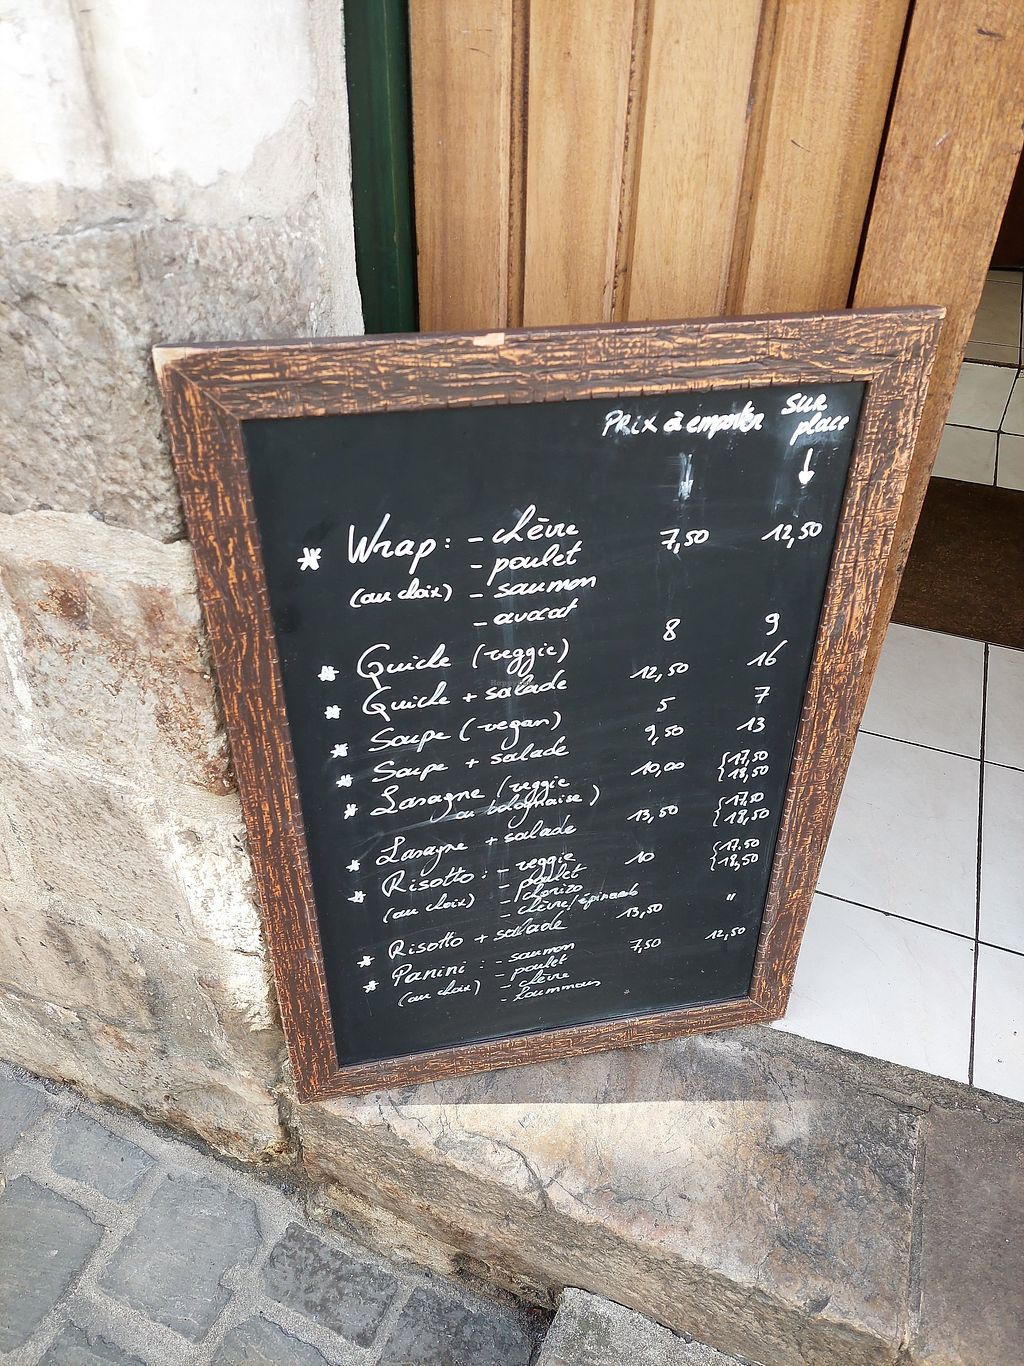 PRix à emporter sur place
* Wrap: - chèvre 7,50 12,50
- poulet
(au choix) - saumon
- avocat
* Quiche (veggie) 8 9
* Quiche + salade 12,50 16
* Soupe (vegan) 5 7
* Soupe + salade 9,50 13
* Lasagne (veggie 10,00 {17,50
ou bolognaise) {18,50
* Lasagne + salade 13,50 {17,50
{18,50
* Risotto: - veggie 10 {17,50
- poulet {18,50
(au choix) - chorizo
- chèvre/épinards
* Risotto + salade 13,50 "
* Panini: - saumon 7,50 12,50
- poulet
(au choix) - chèvre
- hoummous